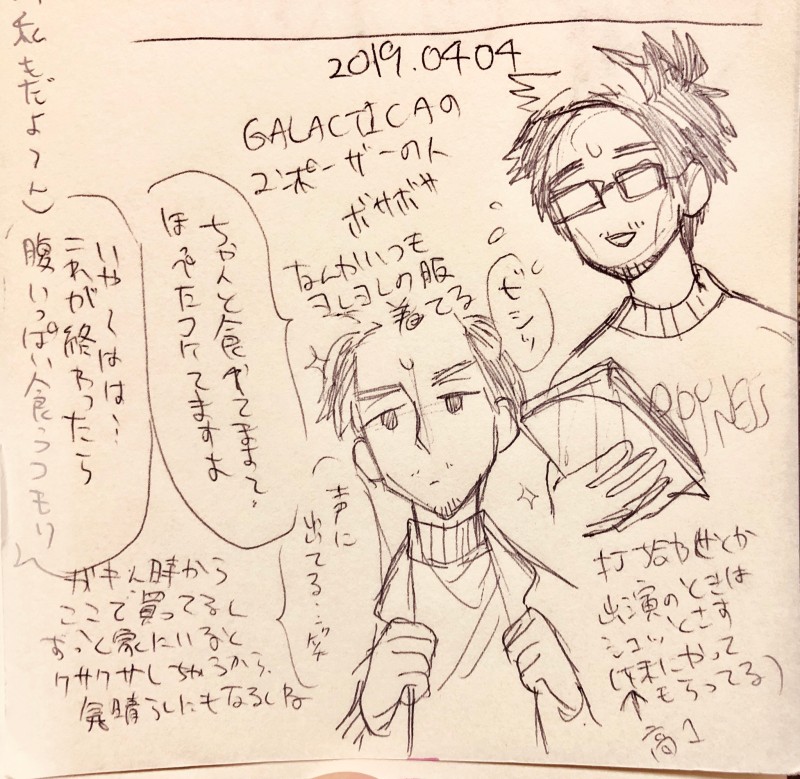 2019.04.04
GALACTICAの
コンポーザーの人
ボサボサ
なんかいつも
ヨレヨレの服
着てる
ビシッ
PPYNESS
ちゃんと食べてますって。
ほっぺた
てますよ
いやーはは…
これが終わったら
腹いっぱい食うつもり
私もだよ
声に
出てる…
時から
ここで買ってるし
ずっと家にいると
クサクサしちゃうから、
気晴らしにもなるしね
打ち合わせとか
出演のときは
シュッとさす
(妹にやって
もらってる)
↑
高1